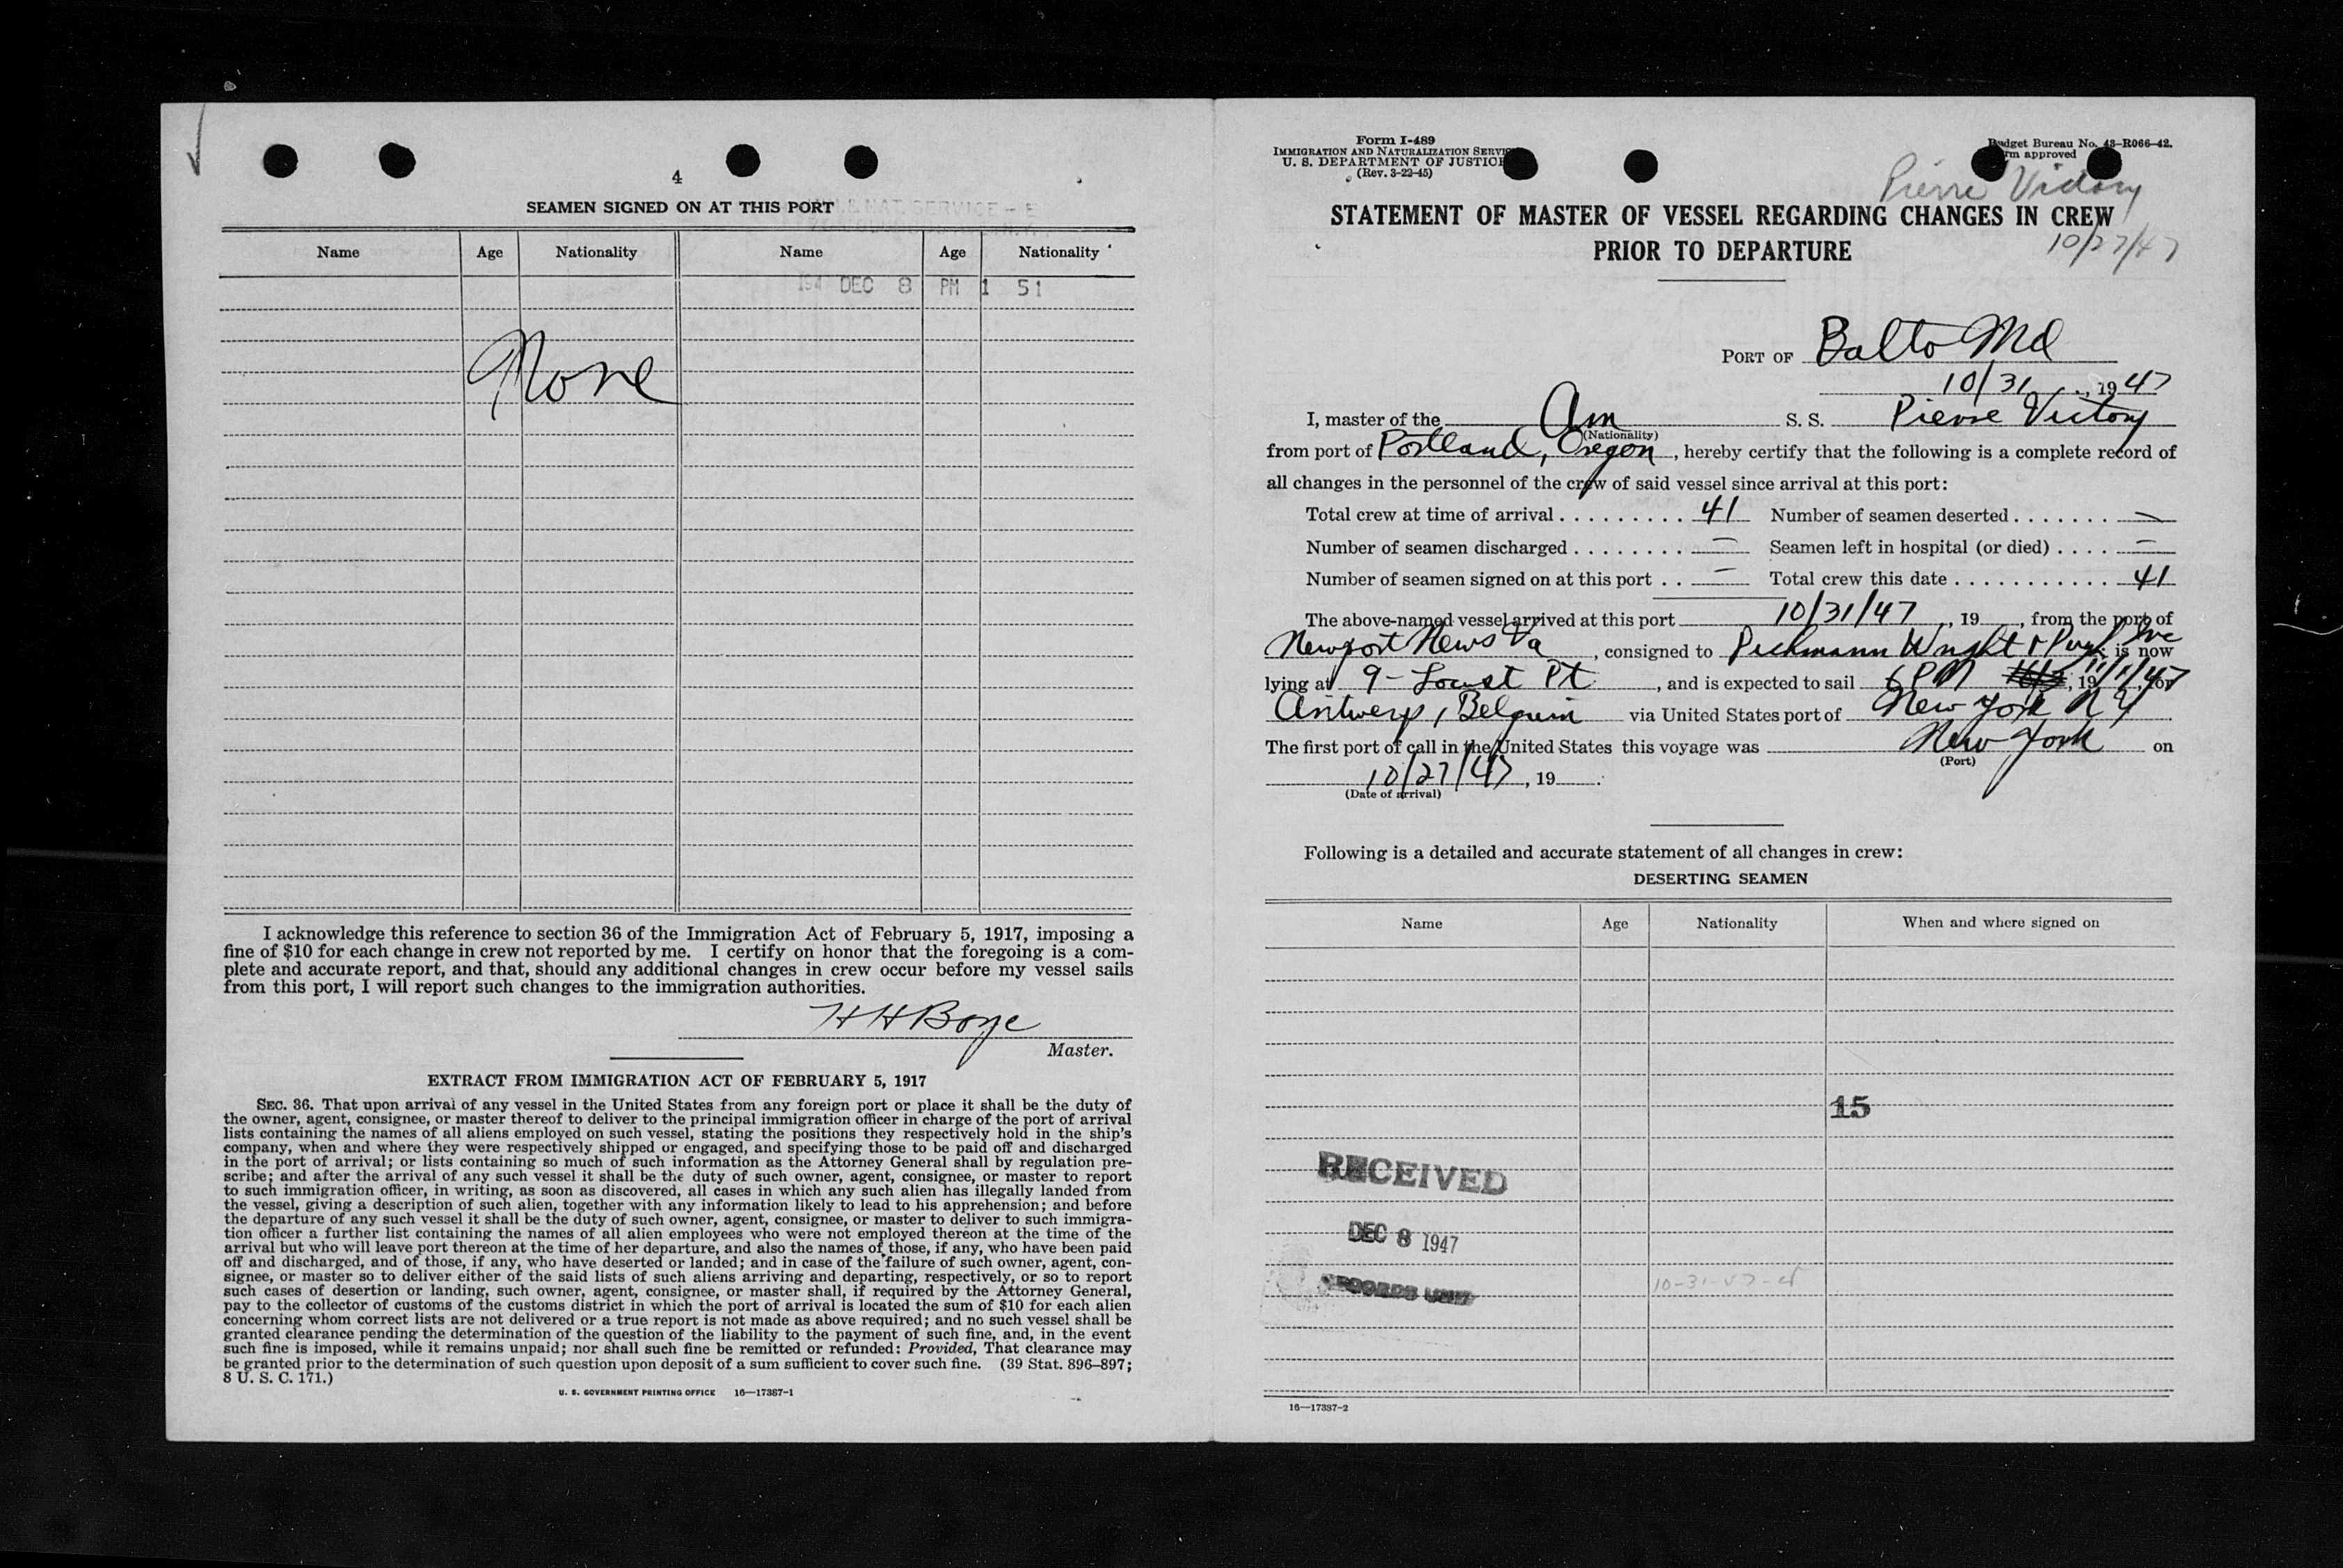 4
SEAMEN SIGNED ON AT THIS PORT
Name Age Nationality Name Age Nationality
DEC 8 PM 1 51
None
I acknowledge this reference to section 36 of the Immigration Act of February 5, 1917, imposing a
fine of $10 for each change in crew not reported by me. I certify on honor that the foregoing is a com-
plete and accurate report, and that, should any additional changes in crew occur before my vessel sails
from this port, I will report such changes to the immigration authorities.
H H Boye
Master.
EXTRACT FROM IMMIGRATION ACT OF FEBRUARY 5, 1917
SEC. 36. That upon arrival of any vessel in the United States from any foreign port or place it shall be the duty of
the owner, agent, consignee, or master thereof to deliver to the principal immigration officer in charge of the port of arrival
lists containing the names of all aliens employed on such vessel, stating the positions they respectively hold in the ship's
company, when and where they were respectively shipped or engaged, and specifying those to be paid off and discharged
in the port of arrival; or lists containing so much of such information as the Attorney General shall by regulation pre-
scribe; and after the arrival of any such vessel it shall be the duty of such owner, agent, consignee, or master to report
to such immigration officer, in writing, as soon as discovered, all cases in which any such alien has illegally landed from
the vessel, giving a description of such alien, together with any information likely to lead to his apprehension; and before
the departure of any such vessel it shall be the duty of such owner, agent, consignee, or master to deliver to such immigra-
tion officer a further list containing the names of all alien employees who were not employed thereon at the time of the
arrival but who will leave port thereon at the time of her departure, and also the names of those, if any, who have been paid
off and discharged, and of those, if any, who have deserted or landed; and in case of the failure of such owner, agent, con-
signee, or master so to deliver either of the said lists of such aliens arriving and departing, respectively, or so to report
such cases of desertion or landing, such owner, agent, consignee, or master shall, if required by the Attorney General,
pay to the collector of customs of the customs district in which the port of arrival is located the sum of $10 for each alien
concerning whom correct lists are not delivered or a true report is not made as above required; and no such vessel shall be
granted clearance pending the determination of the question of the liability to the payment of such fine, and, in the event
such fine is imposed, while it remains unpaid; nor shall such fine be remitted or refunded: Provided, That clearance may
be granted prior to the determination of such question upon deposit of a sum sufficient to cover such fine. (39 Stat. 896–897;
8 U. S. C. 171.)
U. S. GOVERNMENT PRINTING OFFICE 16—17387-1
Form I-489
IMMIGRATION AND NATURALIZATION SERVI
U. S. DEPARTMENT OF JUSTICE
(Rev. 3-22-45)
Budget Bureau No. 43-R066-42.
approved
Pierre Victory
STATEMENT OF MASTER OF VESSEL REGARDING CHANGES IN CREW
PRIOR TO DEPARTURE
10/27/47
PORT OF Balto Md
10/31, 1947
I, master of the Am S. S. Pierre Victory
(Nationality)
from port of Portland, Oregon, hereby certify that the following is a complete record of
all changes in the personnel of the crew of said vessel since arrival at this port:
Total crew at time of arrival . . . . . . . . . 41 Number of seamen deserted . . . . . . . —
Number of seamen discharged . . . . . . . . — Seamen left in hospital (or died) . . . . —
Number of seamen signed on at this port . . — Total crew this date . . . . . . . . . . . . 41
The above-named vessel arrived at this port 10/31/47, 19, from the port of
Newport News Va, consigned to Wright is now
lying at 9 - Locust Pt, and is expected to sail 6 PM 11/1/47, 19, for
Antwerp, Belguim via United States port of New York N Y.
The first port of call in the United States this voyage was New York on
(Port)
10/27/47, 19 .
(Date of arrival)
Following is a detailed and accurate statement of all changes in crew:
DESERTING SEAMEN
Name Age Nationality When and where signed on
15
RECEIVED
DEC 8 1947
RECORDS UNIT
16—17387-2